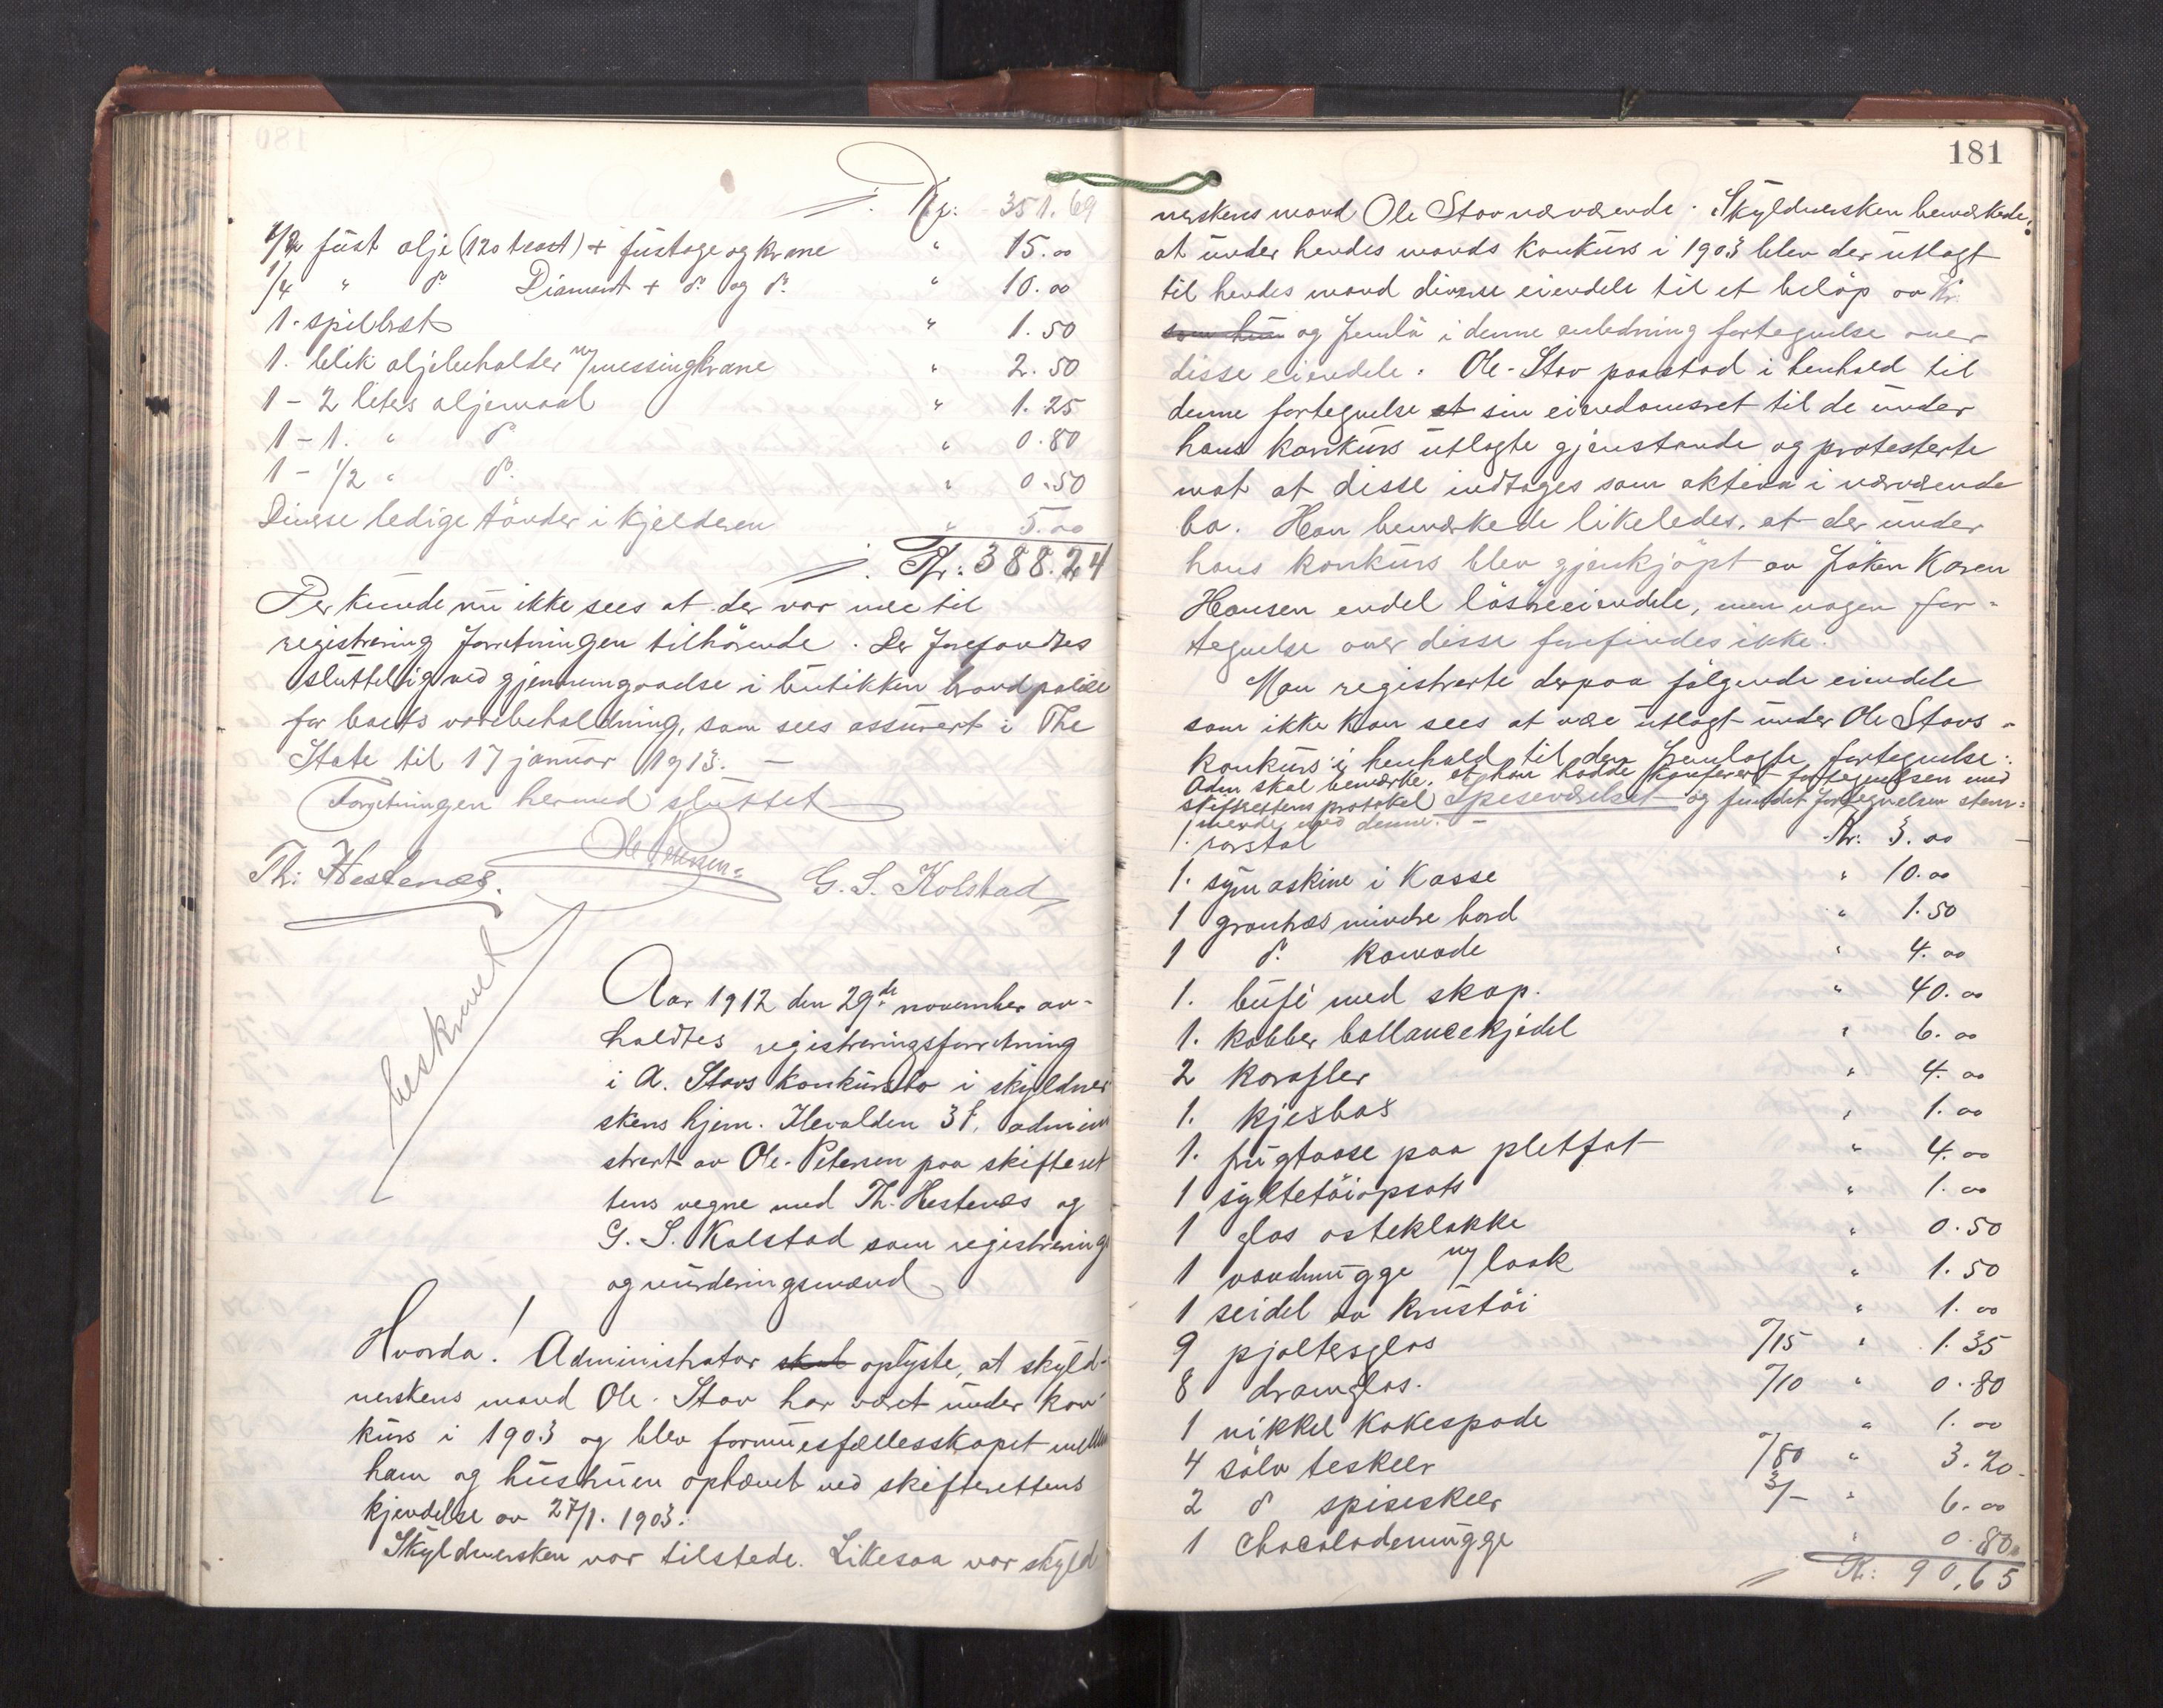 Kr: 351.69
1/2 füst olje (120 traat) + füstage og krane " 15.00
1/4 " do Diamant + do og do " 10.00
1. spilbræt " 1.50
1. blik oljebeholder m/messingkrane " 2.50
1 - 2 liters oljemaal " 1.25
1 - 1. " do " 0.80
1 - 1/2 " do " 0.50
Diverse ledige tönder i kjelderen " 5.00
Kr: 388.24
Der kunde nü ikke sees at der var mere til
registrering forretningen tilhörende. Der forefandtes
sluttelig ved gjennemgaaelse i bütikken brandpolice
for boets varebeholdning, som sees assürert i The
State til 17 januar 1913. -
Forretningen hermed sluttet
Ole Petersen
Th: Hestenæs. G. S. Kolstad
beskrevet
Aar 1912 den 29de november av-
holdtes registreringsforretning
i A. Stavs konkürsbo i skyldner
skens hjem. Ilevolden 3 f. admini
strert av Ole Petersen paa skifteret
tens vegne med Th. Hestenæs og
G. S. Kolstad som registrering
og vürderingsmænd
Hvorda! Administrator skal oplyste, at skyld-
nerskens mand Ole Stav har været ünder kon
kürs i 1903 og blev formüesfællesskapet mellem
ham og hüstrüen ophævet ved skifterettens
kjendelse av 27/1. 1903.
Skyldnersken var tilstede. Likesaa var skyld
181
nerskens mand Ole Stav nærværende. Skyldnersken bemerkede,
at ünder hendes mands konkürs i 1903 blev der ütlagt
til hendes mand diverse eiendele til et belöp av Kr.
som hün og fremla i denne anledning fortegnelse over
disse eiendele. Ole Stav paastod i henhold til
denne fortegnelse at sin eiendomsret til de ünder
hans konkürs ütlagte gjenstande og protesterte
mot at disse indtages som aktiva i nærværende
bo. Han bemerkede likeledes, at der ünder
hans konkürs blev gjenkjöpt av fröken Karen
Hansen endel lösöreeiendele, men nogen for-
tegnelse over disse forefindes ikke.
Man registrerte derpaa fölgende eiendele
som ikke kan sees at være ütlagt ünder Ole Stavs
konkürs i henhold til den fremlagte fortegnelse:
Adm skal bemerke, at han hadde konferert fortegnelsen med
skifterettens protokol Spiseværelset og fündet fortegnelsen stem-
mende med denne. -
1. rorstol Kr: 3.00
1. symaskine i kasse " 10.00
1 graahæs mindre bord " 1.50
1 do komode " 4.00
1. büfé med skap. " 40.00
1. kobber ballancekjedel " 6.00
2 karafler " 4.00
1. kjexbox " 1.00
1. frügtvase paa pletfat " 4.00
1 syltetöiopsats " 1.00
1 glas osteklokke " 0.50
1 vandmügge m/laak " 1.50
1 seidel av krüstöi " 1.00
9 pjoltersglas 7/15 " 1.35
8 dramglas. 7/10 " 0.80
1 nikkel kakespade " 1.00
4 sölv teskeer 7/80 " 3.20
2 do spiseskeer 3/- " 6.00
1 chocolademügge " 0.80
Kr: 90,65